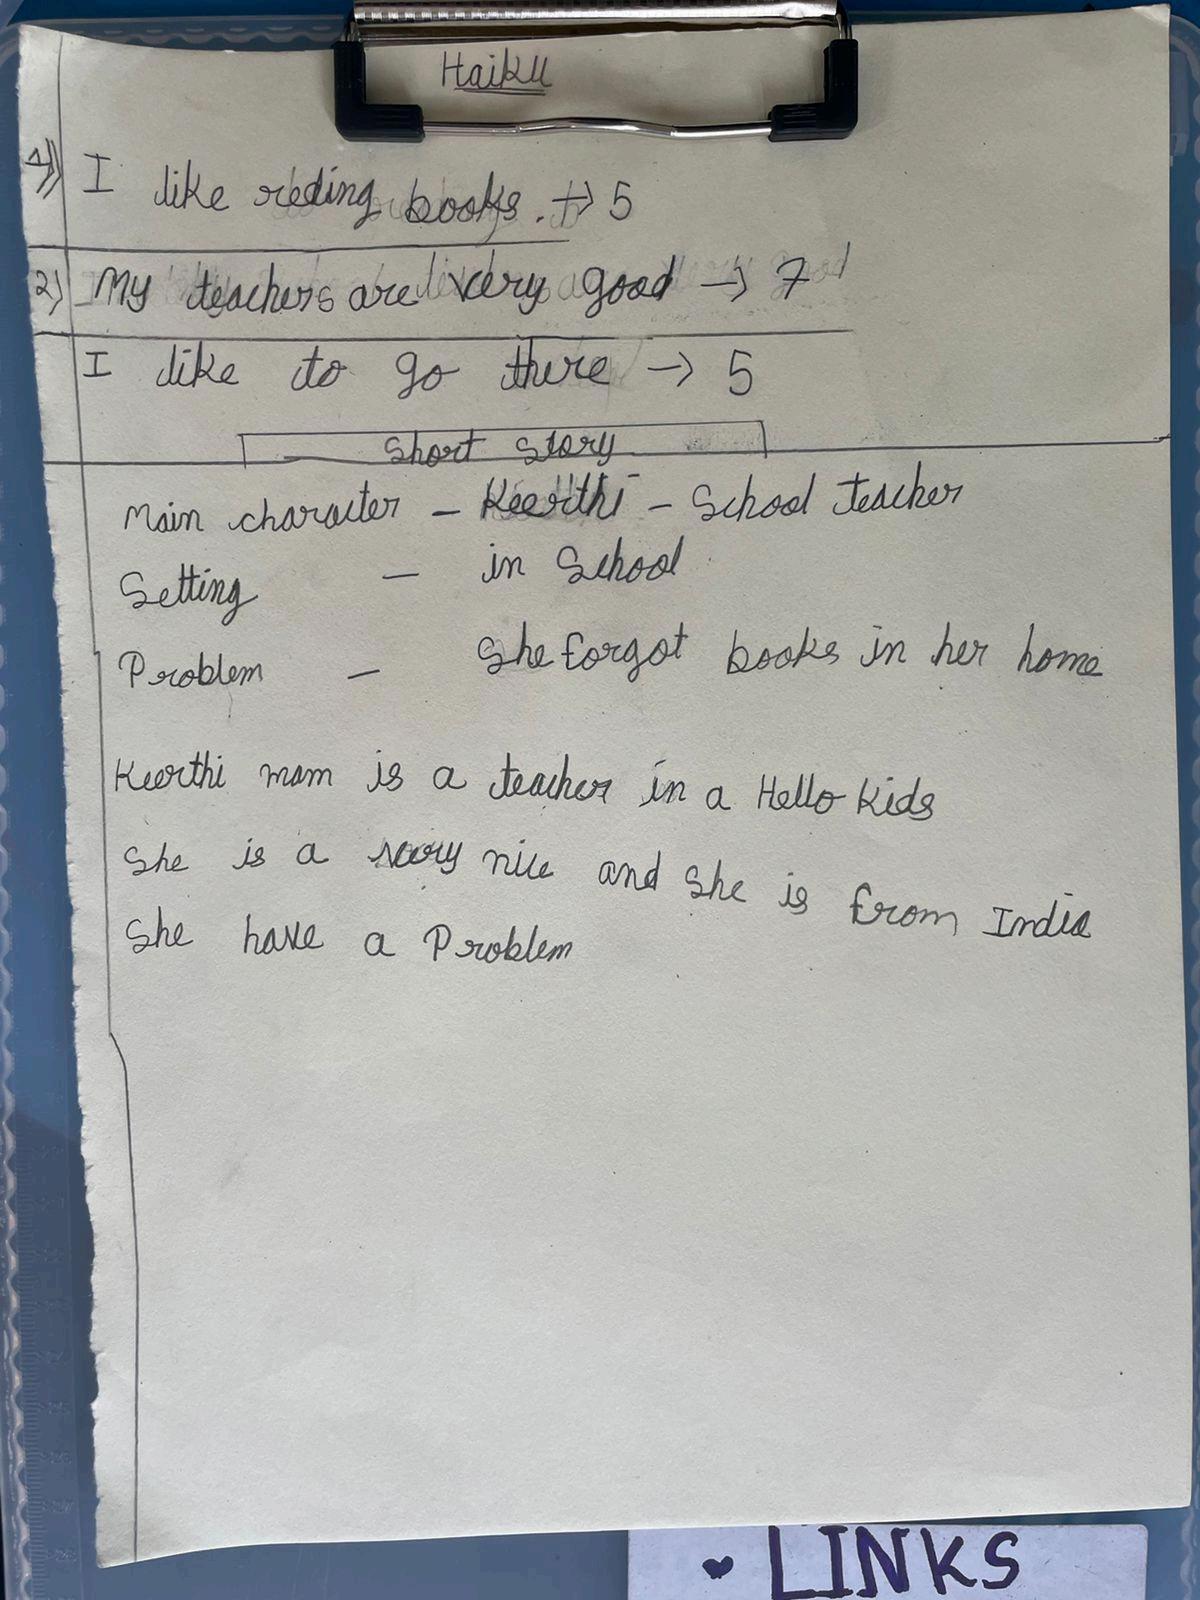 Haiku
1) I like reding books. → 5
2) My teachers are very good → 7
I like to go there → 5
Short Story
Main character - Keerthi - School teacher
Setting - in School
Problem - She forgot books in her home
Keerthi mam is a teacher in a Hello Kids
She is a very nice and She is from India
She have a Problem
LINKS